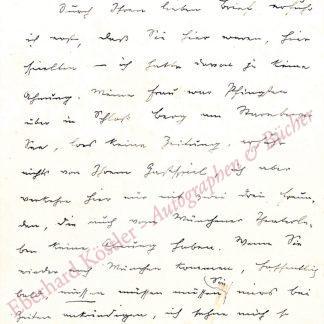 Durch Ihren lieben Brief erfuhr
ich erst, daß Sie hier waren, hier
spielten – ich hatte davon ja keine
Ahnung. Meine Frau war Pfingsten
über in Schloß Berg am Starnberger
See, las keine Zeitung,
nichts von Ihrem Gastspiel, ich aber
verkehre hier nur mit zwei drei Freun-
den, die auch vom Münchner Theaterle-
ben keine Ahnung haben. Wenn Sie
wieder nach München kommen, hoffentlich
bald, müssen müssen müssen Sie mirs bei
Zeiten ankündigen, ich sehne mich so
Eberhard Köstler - Autographen & Bücher